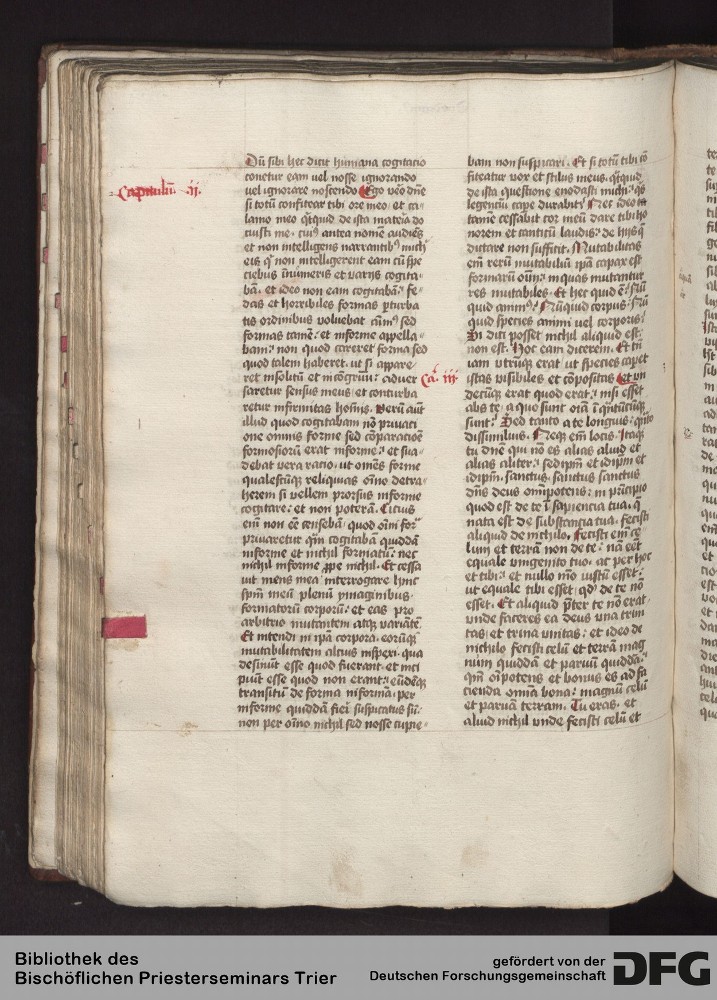 Capitulū ·ij·
Dū sibi hec dicit humana cogitatio
conetur eam vel nosse ignorando
vel ignorare noscendo Ego vēo dn̄e
si totū confitear tibi ore meo et ca-
lamo meo qͥtquid de ista materia do
cuisti me· cuiꝰ antea nomē audiēs
et non intelligens narrantibꝰ mich
eis qͥ non intelligerent eam cū spe
ciebus īnumeris et varijs cogita-
bā· et ideo non eam cogitabā· fe-
das et horribiles formas ꝑturba
tis ordinibus voluebat aīmꝰ sed
formas tamē· et informe appella-
bam· non quod careret forma sed
quod talem haberet· ut si appare-
ret insolitū et incōgruū· aduer
saretur sensus meus et conturba
retur infirmitas homīs· Verū aūt
illud quod cogitabam nō priuati
one omnis forme sed cōparatiōe
formosiorū erat informe· et sua-
debat vera ratio· ut omēs forme
qualescūqꝫ reliquias oīno detra-
herem si vellem prorsus informe
cogitare· et non poterā· Citius
em̄ non eē censebā· quod oim̄ for-
priuaretur qm̄ cogitabā quiddā
informe et nichil formatū· nec
nichil informe ꝓpe nichil· Et cessa
uit mens mea interrogare hinc
spm̄ meū plenū ymaginibus
formatorū corporū· et eas pro
arbitrio mutantem atqꝫ variātē
Et intendi in ipā corpora· eorūqꝫ
mutabilitatem altius inspexi· qua
desinūt esse quod fuerant· et inci
piūt esse quod non erant· eūdēqꝫ
transitū de forma informā· per
informe quiddā fieri suspicatus sū-
non per oīno nichil sed nosse cupie-
bam non suspicari· Et si totū tibi cō
fiteatur vox et stilus meus· qͥtquid
de ista questione enodasti michi· qͥs
legentiū cape durabit· Nec ideo tn̄
tamē cessabit cor meū dare tibi ho
norem et canticū laudis· de hijs q̄
dictare non sufficit· Mutabilitas
em̄ rerū mutabiliū ipā capax est
formarū oim̄· in quas mutantur
res mutabiles· Et hec quid ē· nū
quid animꝰ· Nūquid corpus· nū
quid species animi vel corporis·
Si dici posset nichil aliquid est·
non est· Hoc eam dicerem· Et tn̄
iam vtrūqꝫ erat ut species capet
Ca· iij·
istas visibiles et cōpositas Et vn
decūqꝫ erat quod erat· nisi esset
abs te· a quo sunt oīa īqͥntūcūqꝫ
sunt· Sed tanto a te longius· qͥnto
dissimilius· Neqꝫ em̄ locis· Itaqꝫ
tu dn̄e qui nō es alias aliud et
alias aliter· sed idipm̄ et idipm̄ et
idipm̄· sanctus· sanctus sanctus
dn̄s deus omīpotens· in prīcipio
quod est de te ī sapiencia tua· q̄
nata est de substancia tua· fecisti
aliquid de nichilo· Fecisti em̄ ce
lum et terrā non de te· nā eēt
equale vnigenito tuo· ac per hoc
et tibi· et nullo mō iustū esset·
ut equale tibi esset qͥd de te nō
esset· Et aliquid p̄ter te nō erat
vnde faceres ea deus vna trini
tas et trina vnitas· et ideo de
nichilo fecisti celū et terrā mag
num quiddā et paruū quiddā·
qm̄ oīpotens et bonus es ad fa
cienda omīa bona· magnū celū
et paruā terram· Tu eras· et
aliud nichil vnde fecisti celū et
Bibliothek des
Bischöflichen Priesterseminars Trier
gefördert von der
Deutschen Forschungsgemeinschaft
DFG